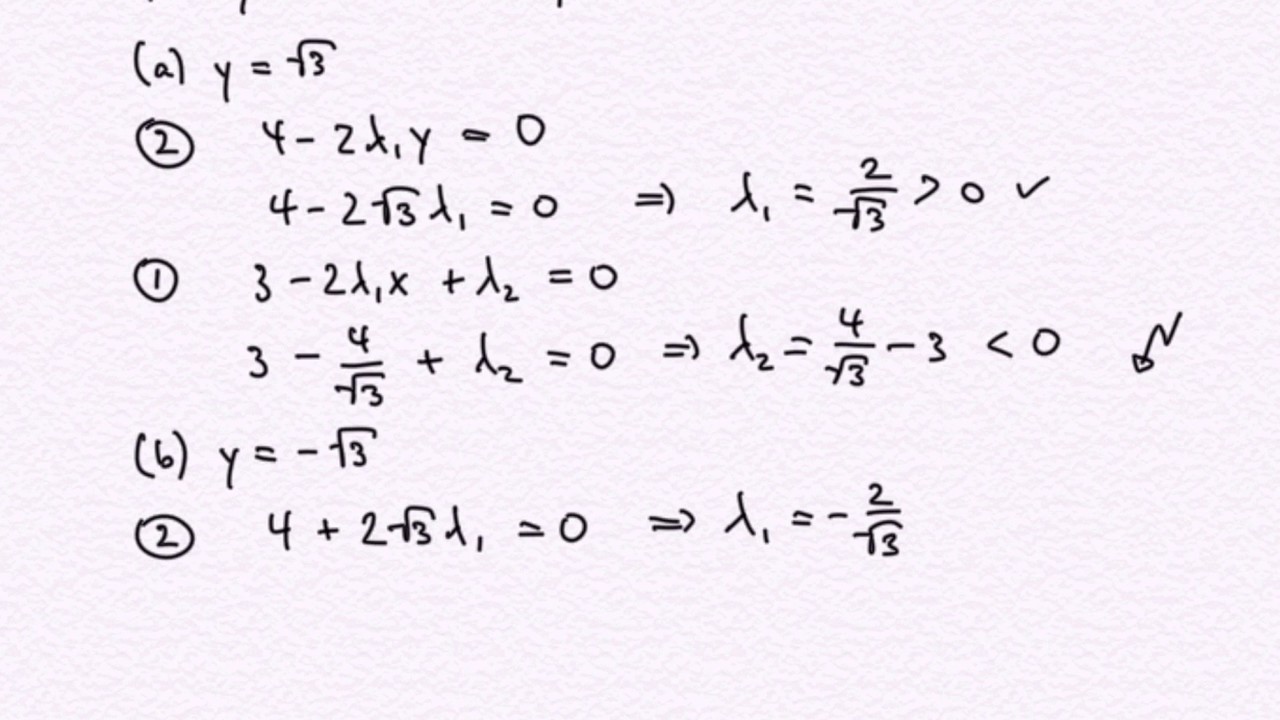 (a) y = √3
② 4 - 2λ₁y = 0
4 - 2√3 λ₁ = 0 ⇒ λ₁ = 2/√3 > 0 ✓
① 3 - 2λ₁x + λ₂ = 0
3 - 4/√3 + λ₂ = 0 ⇒ λ₂ = 4/√3 - 3 < 0 ↯
(b) y = -√3
② 4 + 2√3 λ₁ = 0 ⇒ λ₁ = -2/√3